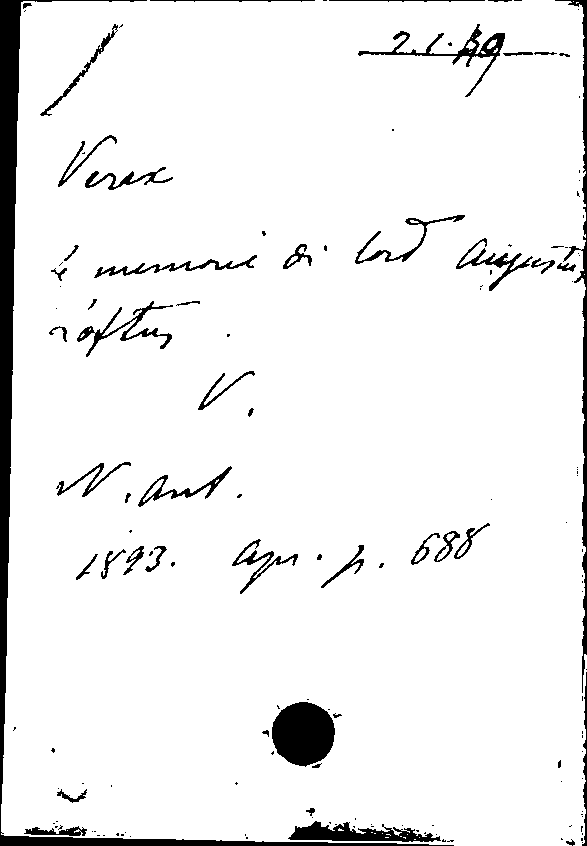 Verax
Le memorie di lord Augustus
Loftus.
V.
N. ant.
1893. apr. p. 688